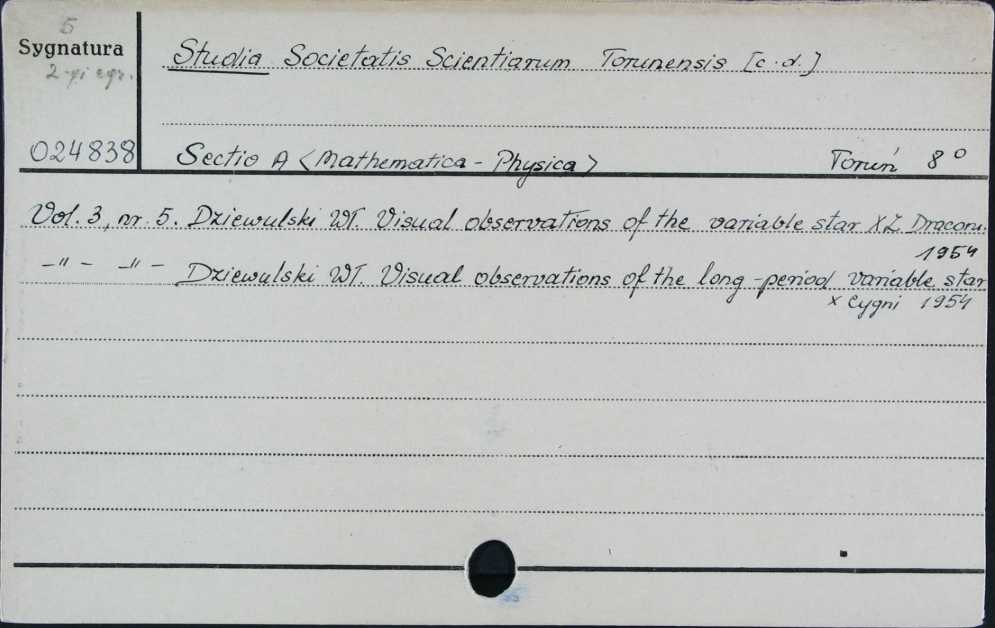 5
Sygnatura
2-gi egz.
Studia Societatis Scientiarum Torunensis [c.d.]
024838
Sectio A <Mathematica - Physica> Toruń 8°
Vol. 3, nr. 5. Dziewulski Wł. Visual observations of the variable star XZ Draconi.
1954
-"- -"- Dziewulski Wł. Visual observations of the long-period variable star
x Cygni 1954